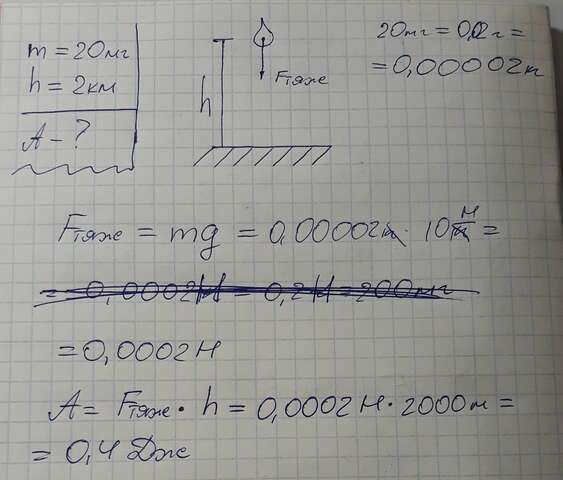 m = 20мг
h = 2км
A - ?
h
Fтяж
20мг = 0,02г =
= 0,00002кг
Fтяж = mg = 0,00002кг · 10 Н/кг =
= 0,0002Н = 0,2Н = 200мг
= 0,0002Н
A = Fтяж · h = 0,0002Н · 2000м =
= 0,4 Дж